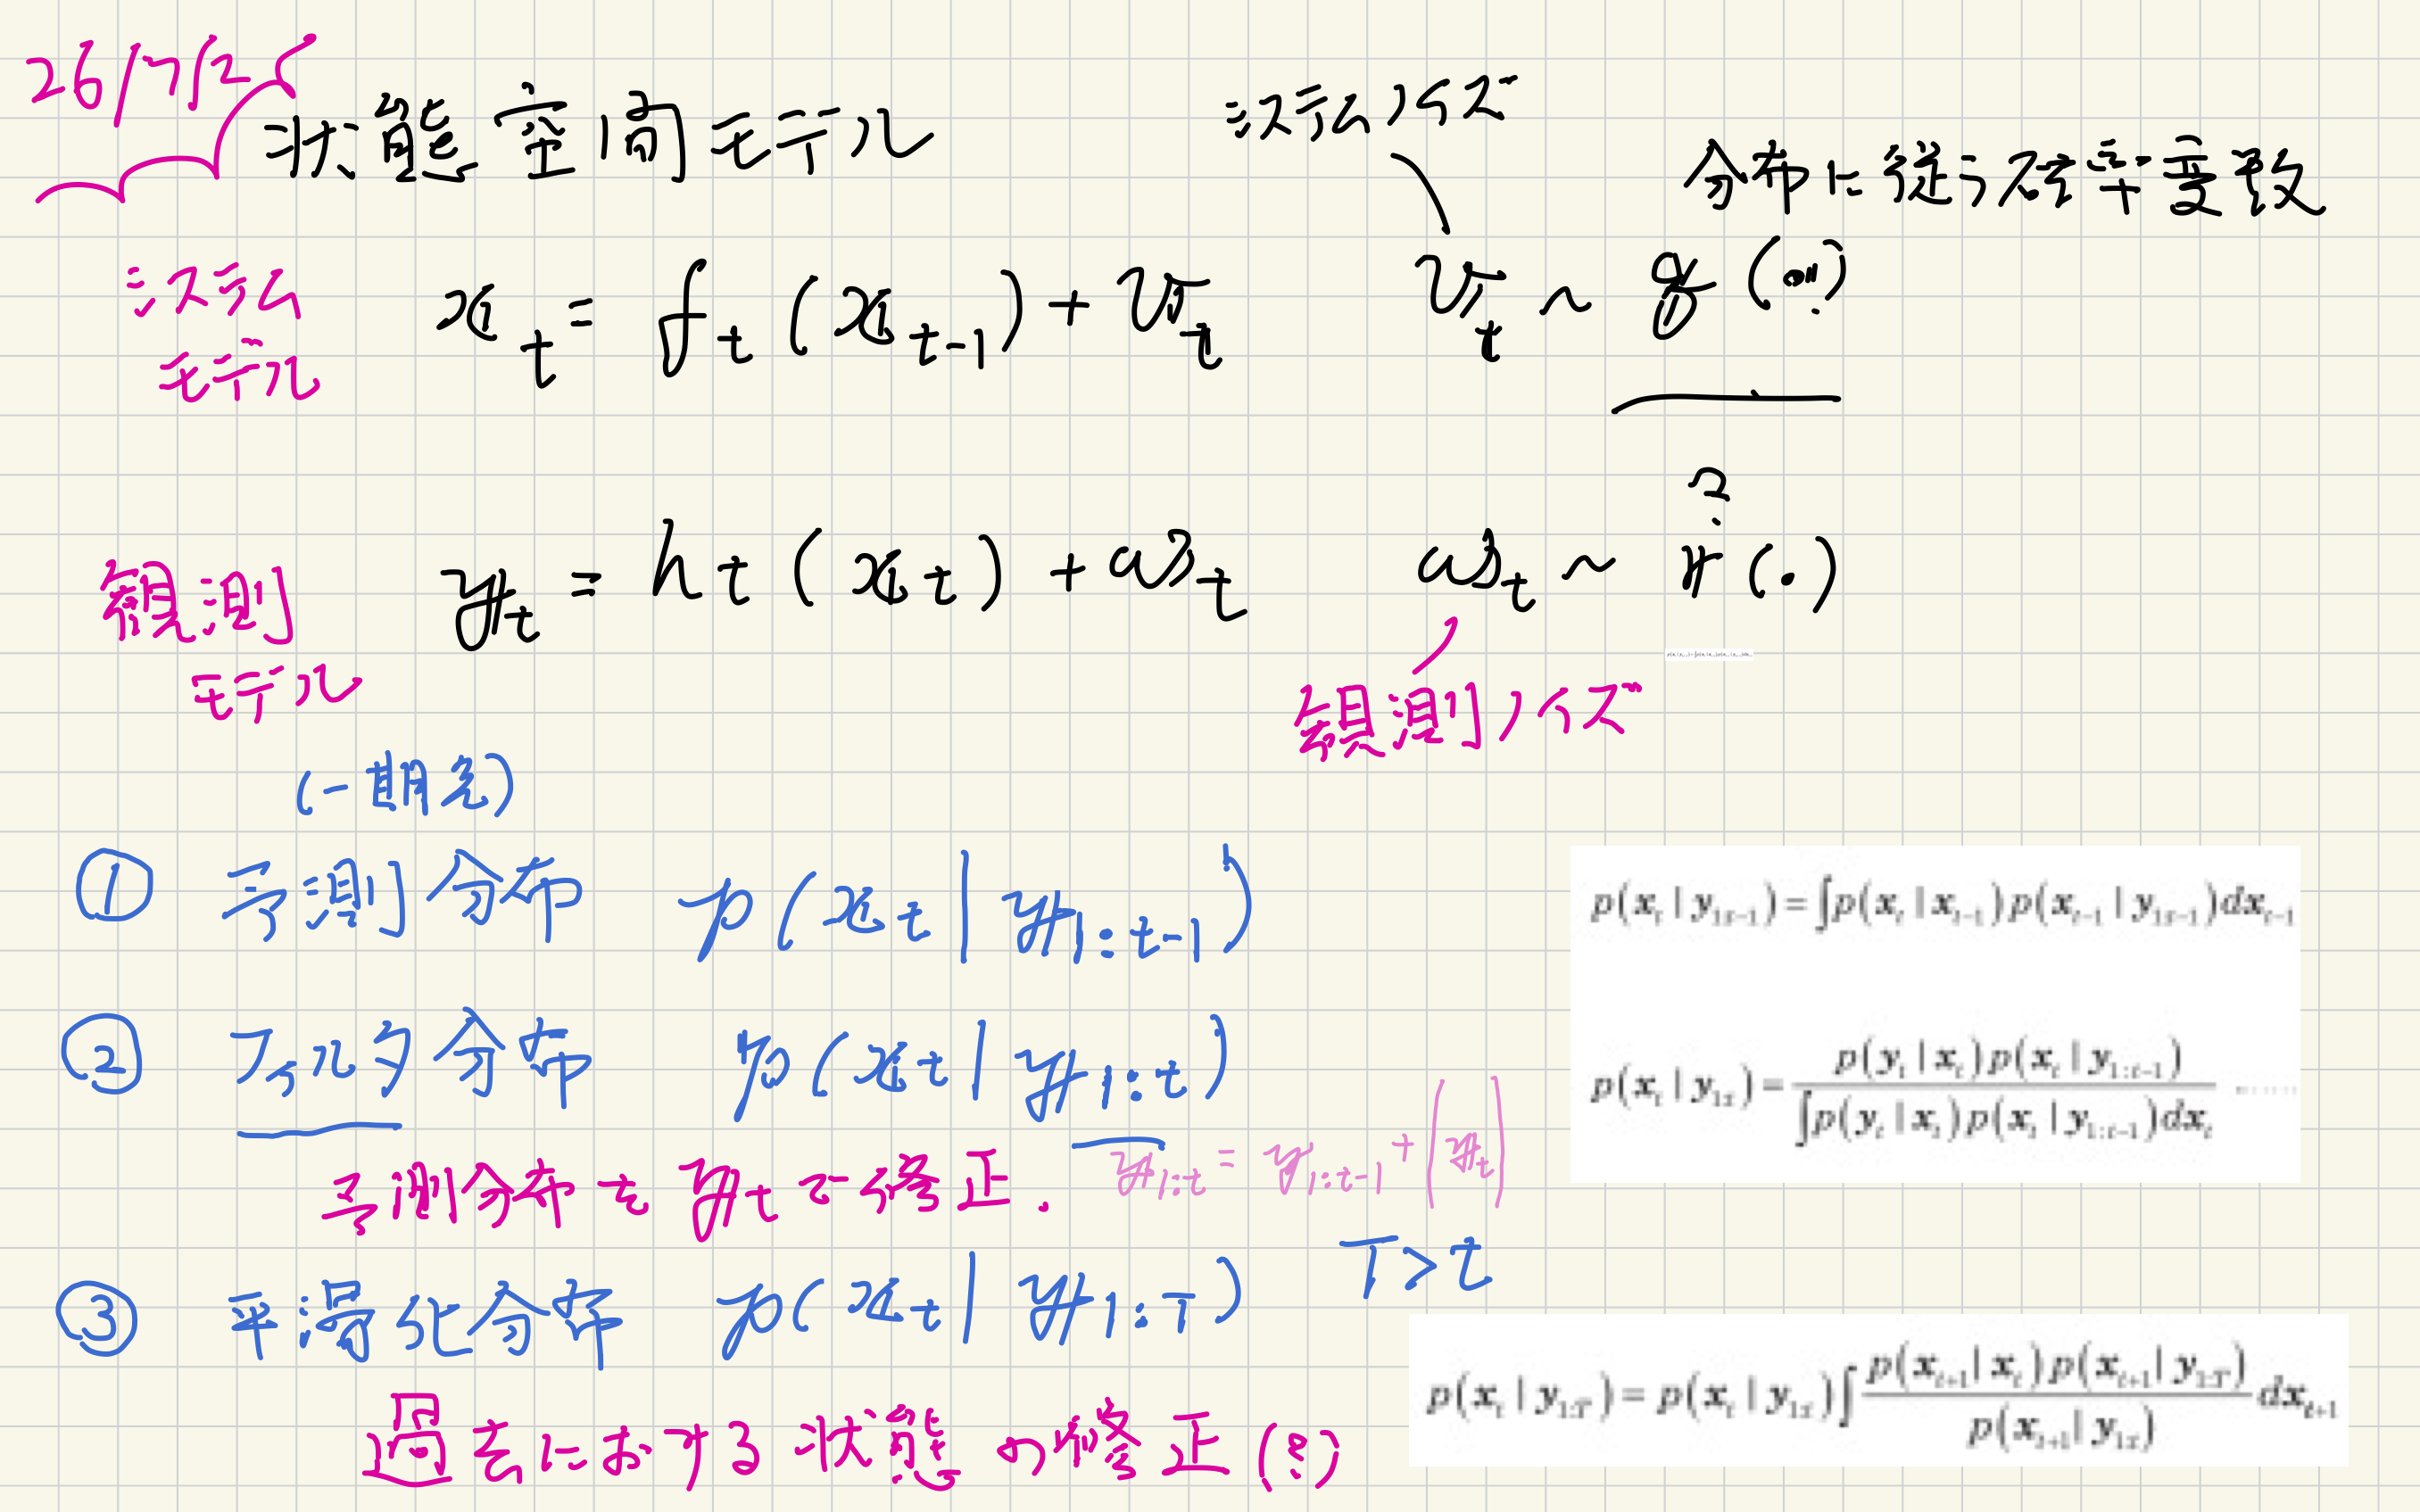 26/7/25
状態空間モデル
システムノイズ
分布に従う確率変数
システムモデル
x_t = f_t(x_{t-1}) + v_t
v_t ~ q(...)
?
観測モデル
y_t = h_t(x_t) + w_t
w_t ~ r(・)
観測ノイズ
(一期先)
① 予測分布 p(x_t | y_{1:t-1})
p(x_t | y_{1:t-1}) = ∫p(x_t | x_{t-1}) p(x_{t-1} | y_{1:t-1}) dx_{t-1}
② フィルタ分布 p(x_t | y_{1:t})
p(x_t | y_{1:t}) = p(y_t | x_t) p(x_t | y_{1:t-1}) / ∫p(y_t | x_t) p(x_t | y_{1:t-1}) dx_t
予測分布をy_tで修正.
y_{1:t} = y_{1:t-1} + |y_t|
③ 平滑化分布 p(x_t | y_{1:T}) T>t
p(x_t | y_{1:T}) = p(x_t | y_{1:t}) ∫ p(x_{t+1} | x_t) p(x_{t+1} | y_{1:T}) / p(x_{t+1} | y_{1:t}) dx_{t+1}
過去における状態の修正